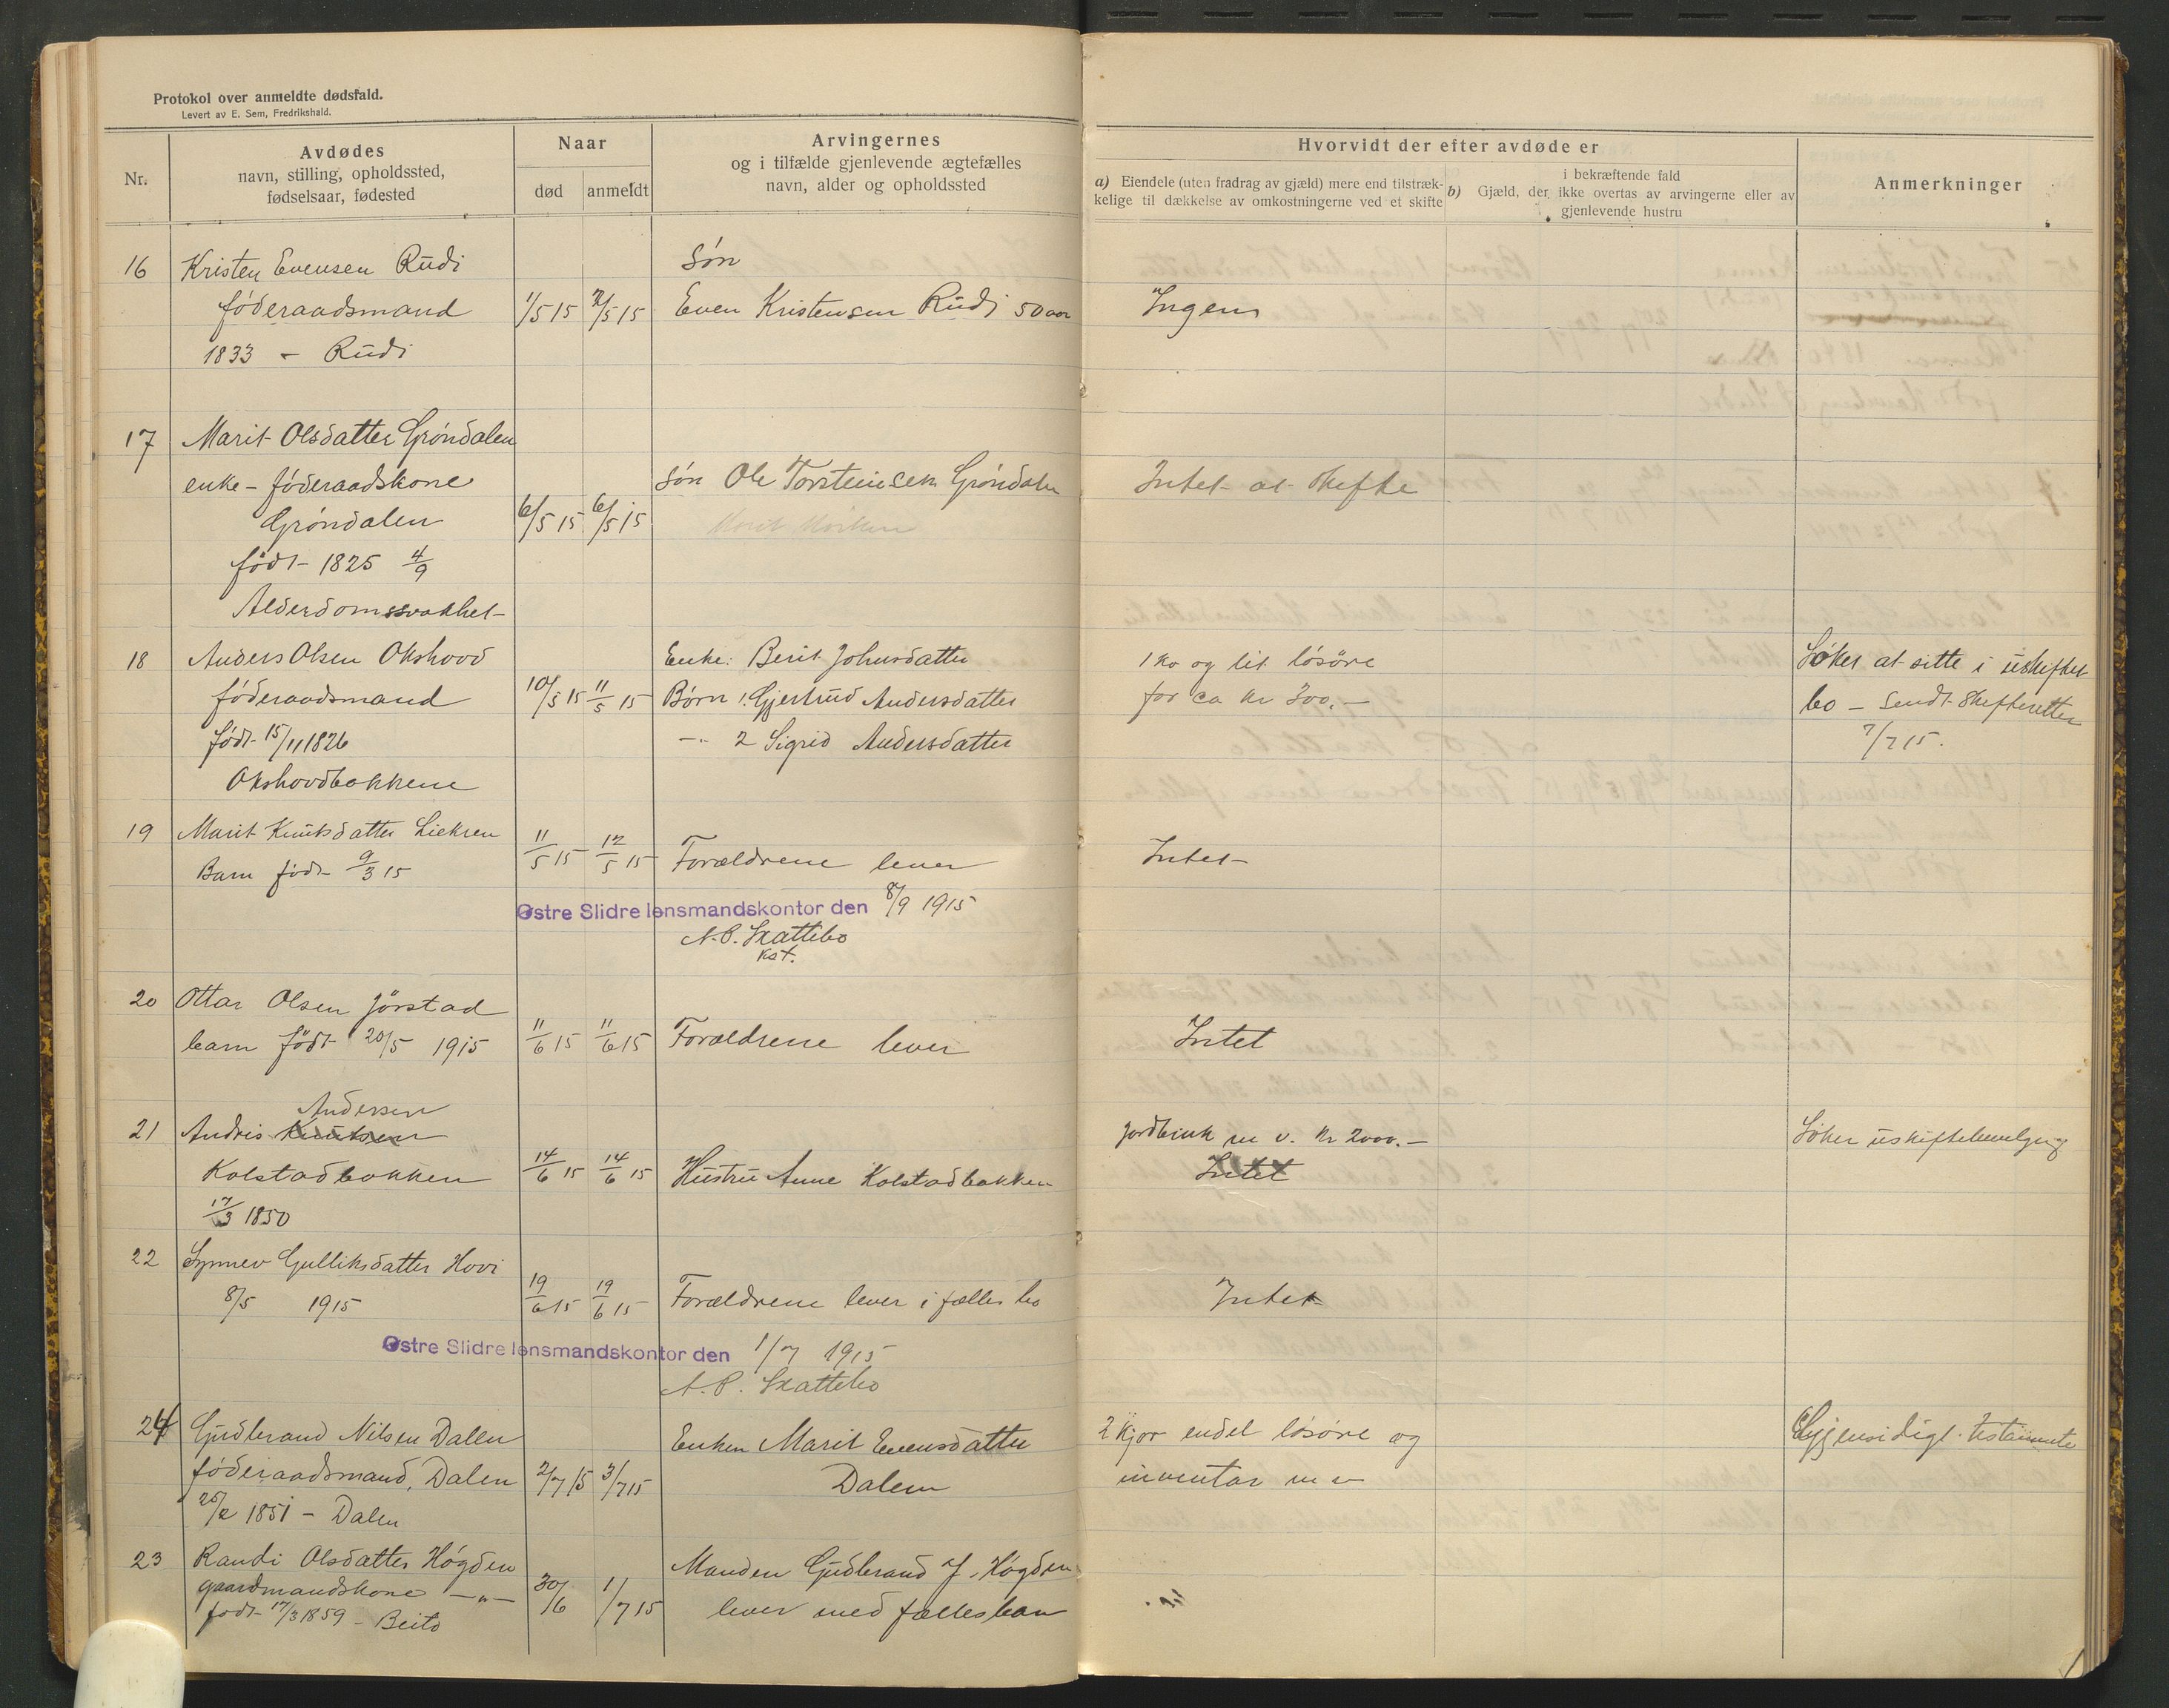 Protokol over anmeldte dødsfald.
Levert av E. Sem, Fredrikshald.
Nr.
Avdødes
navn, stilling, opholdssted,
fødselsaar, fødested
Naar
død
anmeldt
Arvingernes
og i tilfælde gjenlevende ægtefælles
navn, alder og opholdssted
Hvorvidt der efter avdøde er
a) Eiendele (uten fradrag av gjæld) mere end tilstræk-
kelige til dækkelse av omkostningerne ved et skifte
i bekræftende fald
b) Gjæld, der ikke overtas av arvingerne eller av
gjenlevende hustru
Anmerkninger
16 Kristen Evensen Rudi
föderaadsmand
1833 - Rudi
1/5 15
2/5 15
Søn
Even Kristensen Rudi 50 aar
Ingen
17 Marit Olsdatter Gröndalen
enke - föderaadskone
Gröndalen
födt 1825 4/9
Alderdomssvakhet
6/5 15
6/5 15
Søn Ole Torsteinsen Gröndalen
Intet at skifte
18 Anders Olsen Okshovd
föderaadsmand
födt 15/11 1826
Okshovdbakkene
10/5 15
11/5 15
Enke: Berit Johnsdatter
Børn 1. Gjertrud Andersdatter
-"- 2 Sigrid Andersdatter
1 ko og lit lösöre
for ca kr 300.-
Söker at sitte i uskiftet
bo - Sendt skifteretten
7/7 15.
19 Marit Knutsdatter Lieksen
Barn födt 9/3 15
11/5 15
12/5 15
Forældrene lever
Intet
Østre Slidre lensmandskontor den 8/9 1915
N. P. Skattebo
kst.
20 Ottar Olsen Jörstad
barn födt 20/5 1915
11/6 15
11/6 15
Forældrene lever
Intet
Andersen
21 Andris Knutsen
Kolstadbakken
17/3 1850
14/6 15
14/6 15
Hustru Anne Kolstadbakken
Jordbruk m v. kr 2000.-
Intet
Söker uskiftebevilgning
22 Synnev Gulliksdatter Hovi
8/5 1915
19/6 15
19/6 15
Forældrene lever i fælles bo
Intet
Østre Slidre lensmandskontor den 1/7 1915
N. P. Skattebo
24 Gudbrand Nilsen Dalen
föderaadsmand, Dalen
25/2 1851 - Dalen
2/7 15
3/7 15
Enken Marit Evensdatter
Dalen
2 kjør endel lösöre og
inventar m v
Gjensidigt testamente
23 Randi Olsdatter Högden
gaardmandskone -"-
födt 17/3 1859 - Beito
30/6
1/7 15
Manden Gudbrand J. Högden
lever med fællesbarn